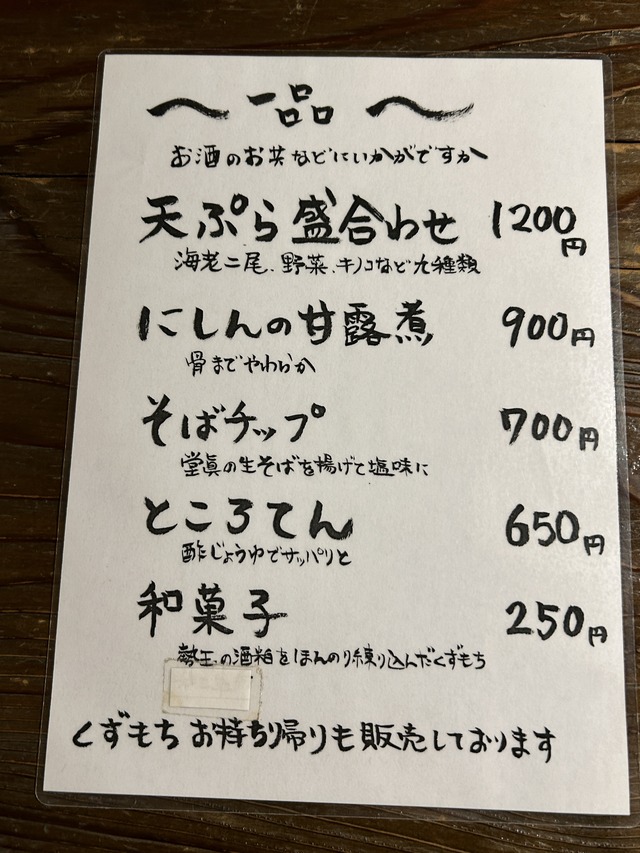 〜一品〜
お酒のお共などにいかがですか
天ぷら盛合わせ 1200円
海老二尾、野菜、キノコなど九種類
にしんの甘露煮 900円
骨までやわらか
そばチップ 700円
堂眞の生そばを揚げて塩味に
ところてん 650円
酢じょうゆでサッパリと
和菓子 250円
勢正の酒粕をほんのり練り込んだくずもち
くずもち お持ち帰りも販売しております